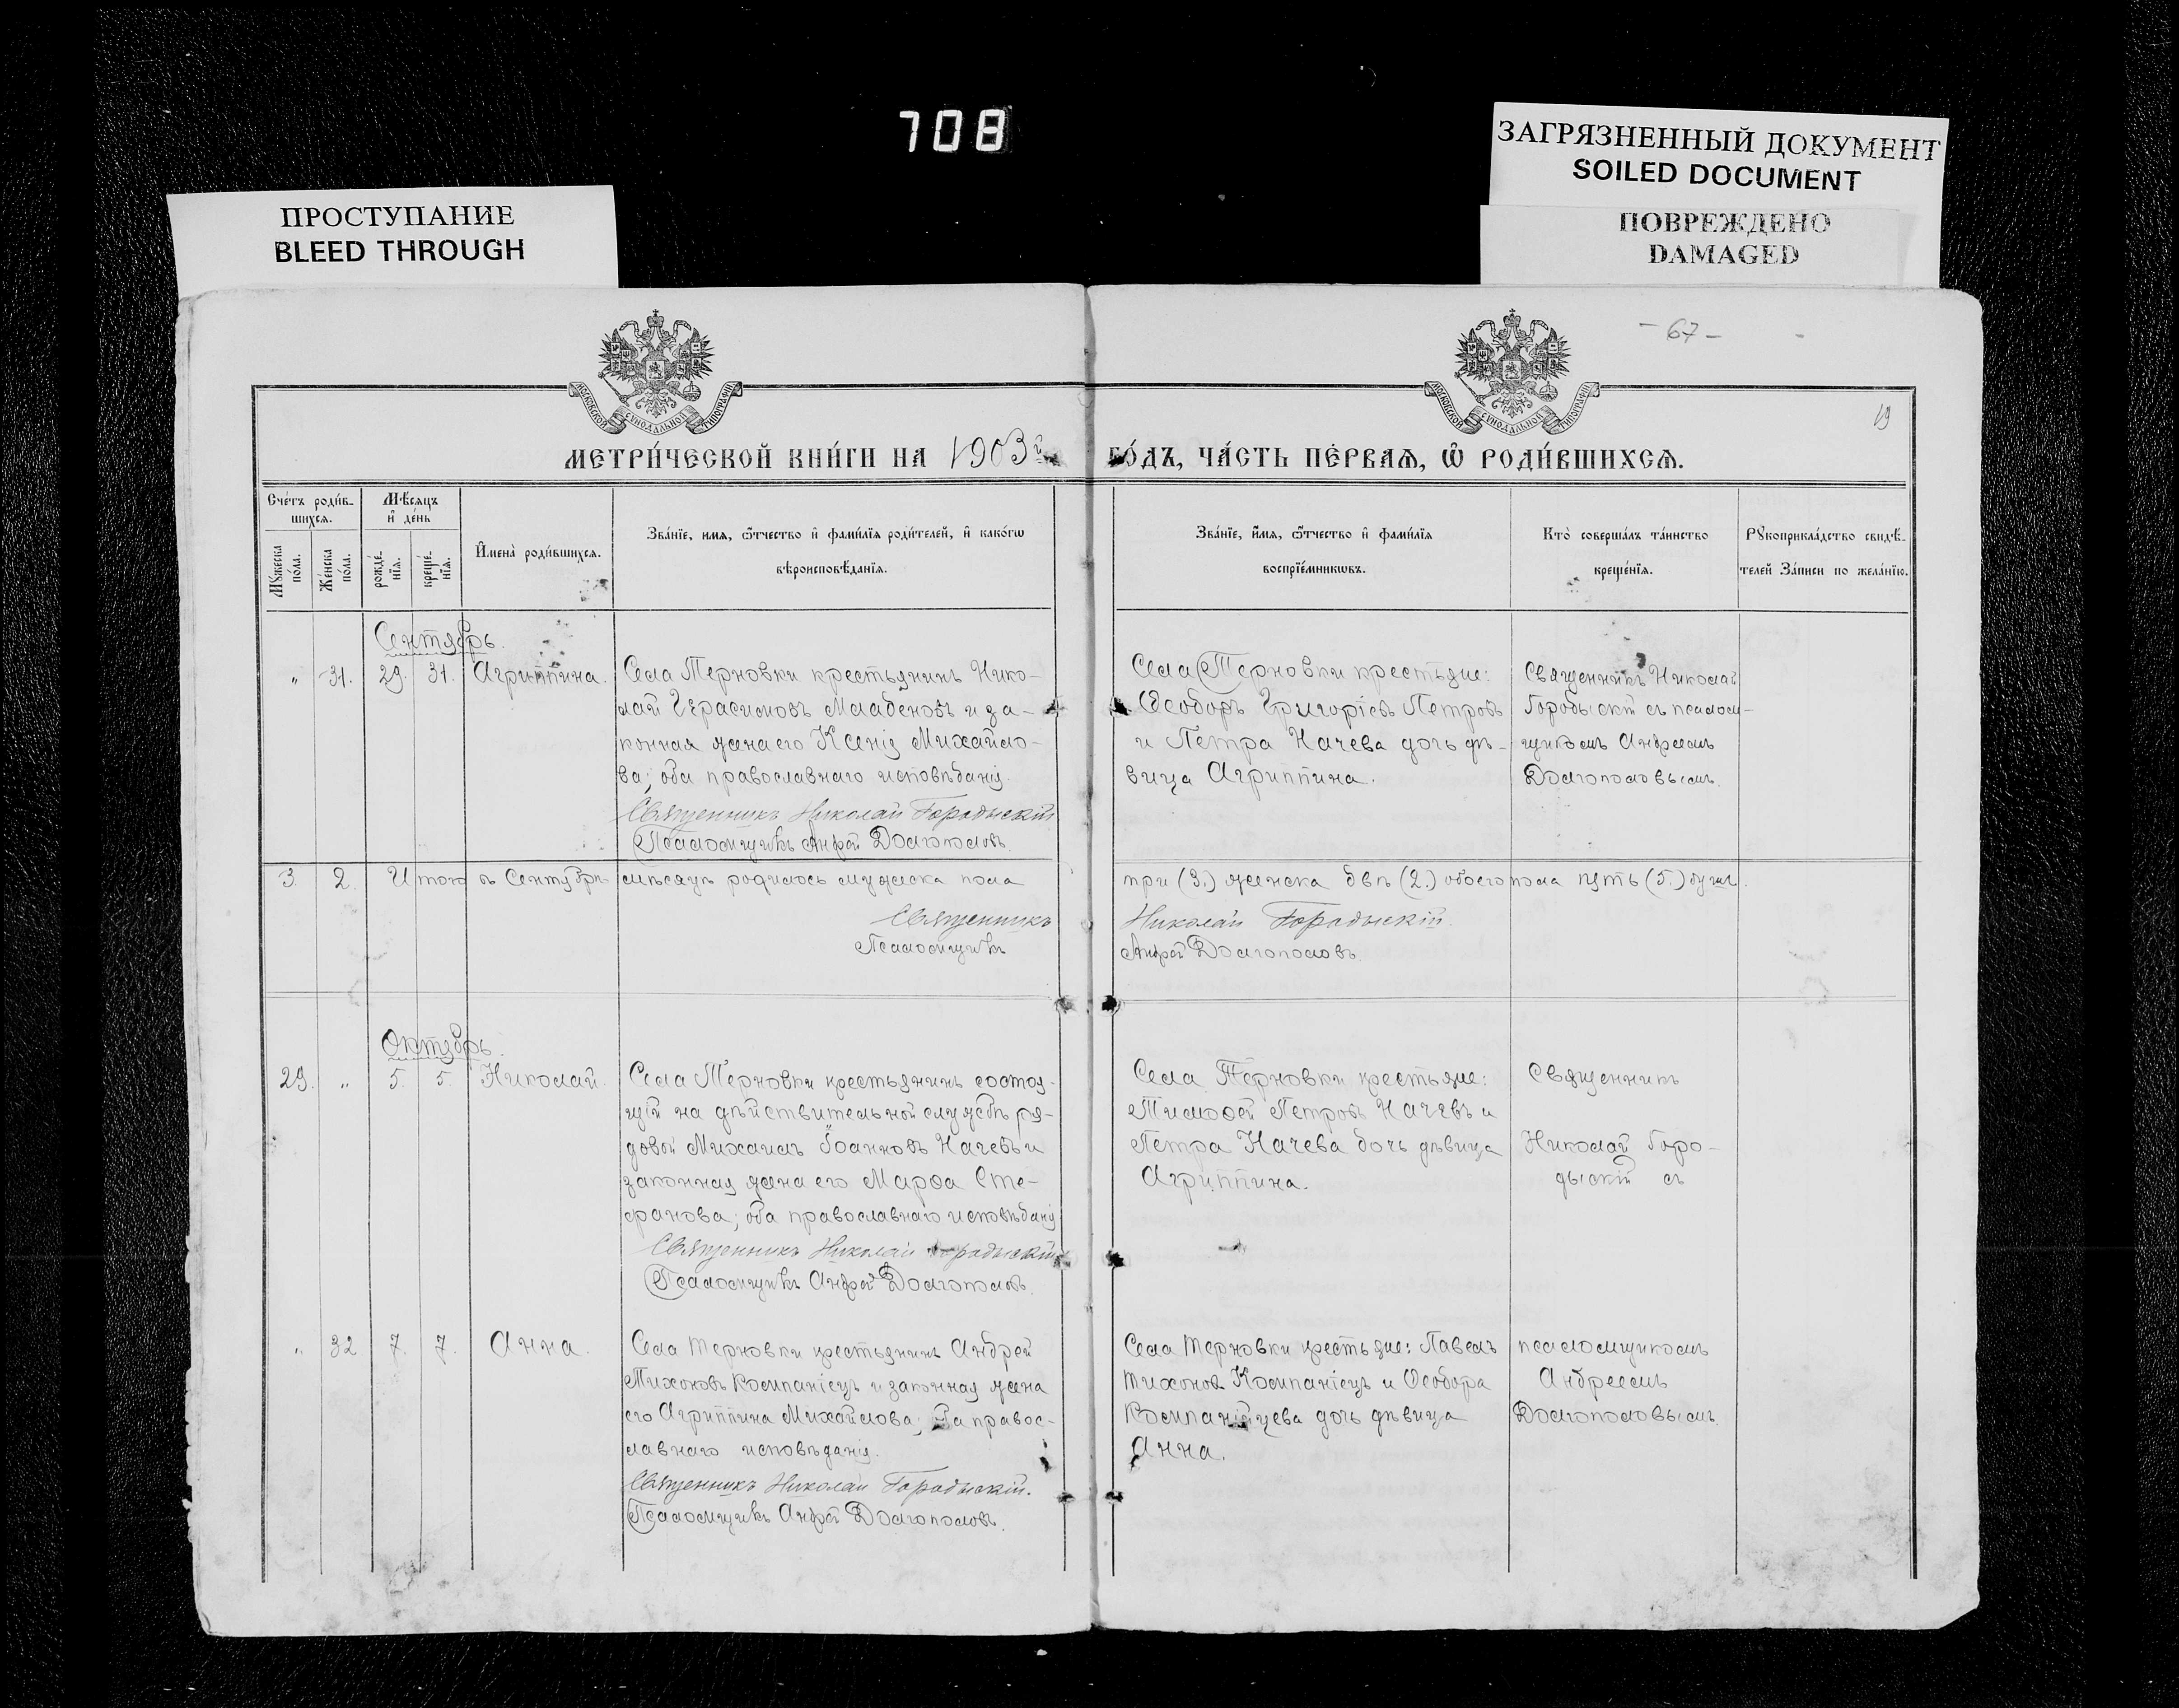 708
ПРОСТУПАНИЕ
BLEED THROUGH
ЗАГРЯЗНЕННЫЙ ДОКУМЕНТ
SOILED DOCUMENT
ПОВРЕЖДЕНО
DAMAGED
– 67 –
19
МОСКОВСКОЙ СѴНОДАЛЬНОЙ ТИПОГРАФІИ
МОСКОВСКОЙ СѴНОДАЛЬНОЙ ТИПОГРАФІИ
МЕТРИ́ЧЕСКОЙ КНИ́ГИ НА 1903й ГО́ДЪ, ЧА́СТЬ ПЕ́РВАѦ, Ѡ҆ РОДИ́ВШИХСѦ.
Сче́тъ роди́в-
шихсѧ.
Мѣ́сѧцъ
и҆ де́нь
Мꙋ́жеска
по́ла.
Же́нска
по́ла.
рожде́-
нїѧ.
креще́-
нїѧ.
И҆мена̀ роди́вшихсѧ.
Зва́нїе, имѧ, ѿтчество и҆ фами́лїѧ роди́телей, и҆ како́гѡ
вѣроисповѣ́данїѧ.
Зва́нїе, и҆́мѧ, ѿтчество и҆ фами́лїѧ
воспрїе́мникѡвъ.
Кто̀ соверша́лъ та́инство
креще́нїѧ.
Рꙋкоприкла́дство свидѣ́-
телей За́писи по жела́нїю.
Сентябрь.
„ 31. 29. 31. Агриппина.
Села Терновки крестьянинъ Нико-
лай Герасимовъ Младеновъ и за-
конная жена его Ксенія Михайло-
ва; оба православнаго исповѣданія.
Священникъ Николай Городыскій
Псаломщикъ Андрей Долгополовъ.
Села Терновки крестьяне:
Ѳеодоръ Григоріевъ Петровъ
и Петра Начева дочь дѣ-
вица Агриппина.
Священникъ Николай
Городыскій съ псалом-
щикомъ Андреемъ
Долгополовымъ.
3. 2. Итого въ Сентябрѣ мѣсяцѣ родилось мужеска пола три (3.) женска двѣ (2.) обоего пола пять (5.) душъ.
Священникъ Николай Городыскій.
Псаломщикъ Андрей Долгополовъ.
Октябрь.
29. „ 5. 5. Николай.
Села Терновки крестьянинъ состоя-
щій на дѣйствительной службѣ ря-
довой Михаилъ Іоанновъ Начевъ и
законная жена его Марѳа Сте-
фанова; оба православнаго исповѣданія
Священникъ Николай Городыскій
Псаломщикъ Андрей Долгополовъ.
Села Терновки крестьяне:
Тимоѳей Петровъ Начевъ и
Петра Начева дочь дѣвица
Агриппина.
Священникъ
Николай Горо-
дыскій съ
„ 32 7. 7. Анна.
Села Терновки крестьянинъ Андрей
Тихоновъ Компаніецъ и законная жена
его Агриппина Михайлова; оба правос-
лавнаго исповѣданія.
Священникъ Николай Городыскій.
Псаломщикъ Андрей Долгополовъ.
Села Терновки крестьяне: Павелъ
Тихоновъ Компаніецъ и Ѳеодора
Компанійцева дочь дѣвица
Анна.
псаломщикомъ
Андреемъ
Долгополовымъ.